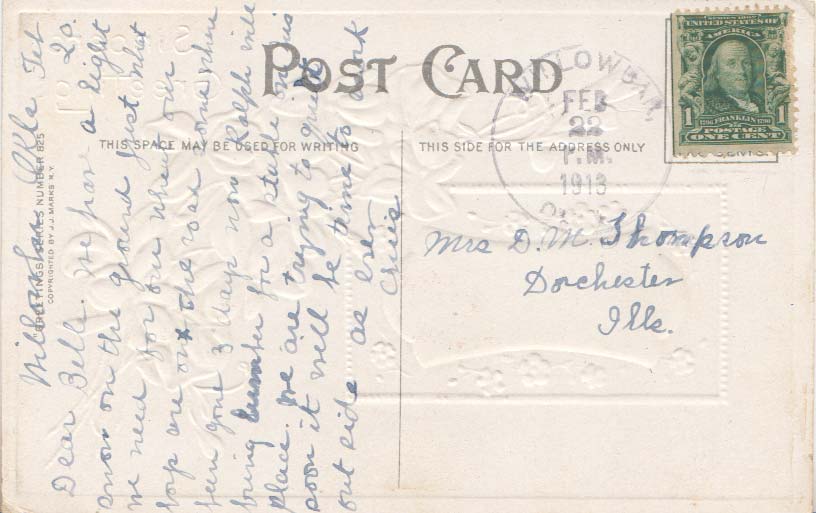 POST CARD
THIS SPACE MAY BE USED FOR WRITING
THIS SIDE FOR THE ADDRESS ONLY
"GREETINGS" SERIES NUMBER 825
COPYRIGHTED BY J.J. MARKS N.Y.
WILLOWBAR
FEB
22
P.M.
1913
OKLA.
SERIES 1902
UNITED STATES OF
AMERICA
1 1
1706 FRANKLIN 1790
POSTAGE
ONE CENT
Willowbar Okla Feb
20.
Dear Bell. We have a light
snow on the ground just what
we need for our wheat our
boys are on the road some where
been gone 3 days now Ralph will
bring lumber for a stable on his
place. We are trying to quilt
soon it will be time to work
out side as ever
Mrs D. M. Thompson
Dorchester
Ills.